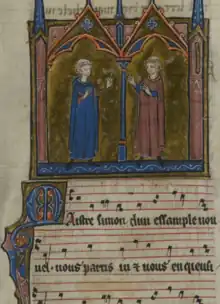 Aistre simon dun essample nou
uel. nous partis iu & nous en queisi